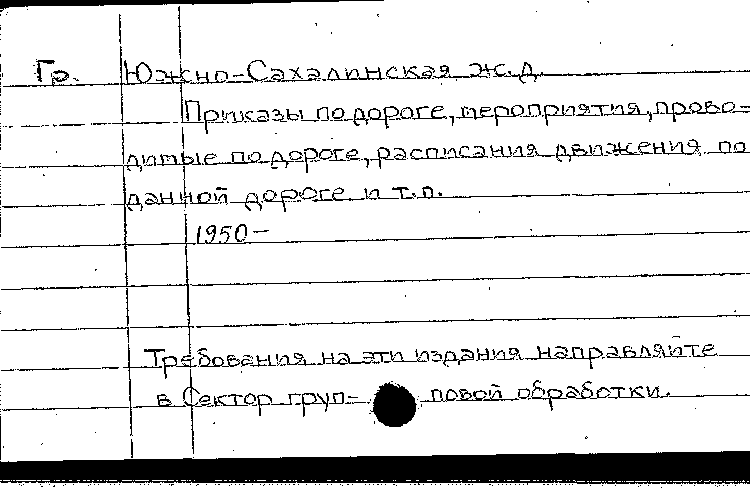 Гр. Южно-Сахалинская ж.д.
Приказы по дороге, мероприятия, прово-
димые по дороге, расписания движения по
данной дороге и т.п.
1950-
Требования на эти издания направляйте
в Сектор груп- повой обработки.